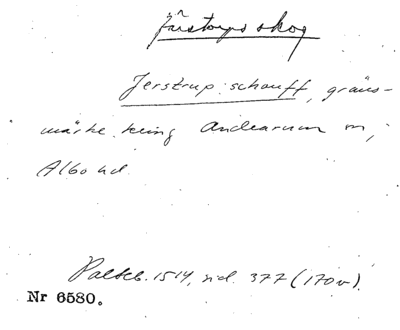 Järstorps skog
Jerstrup schouff, gräns-
märke kring Andrarum m,
Albo hd.
Palteb. 1514, sid. 377 (170v).
Nr 6580.